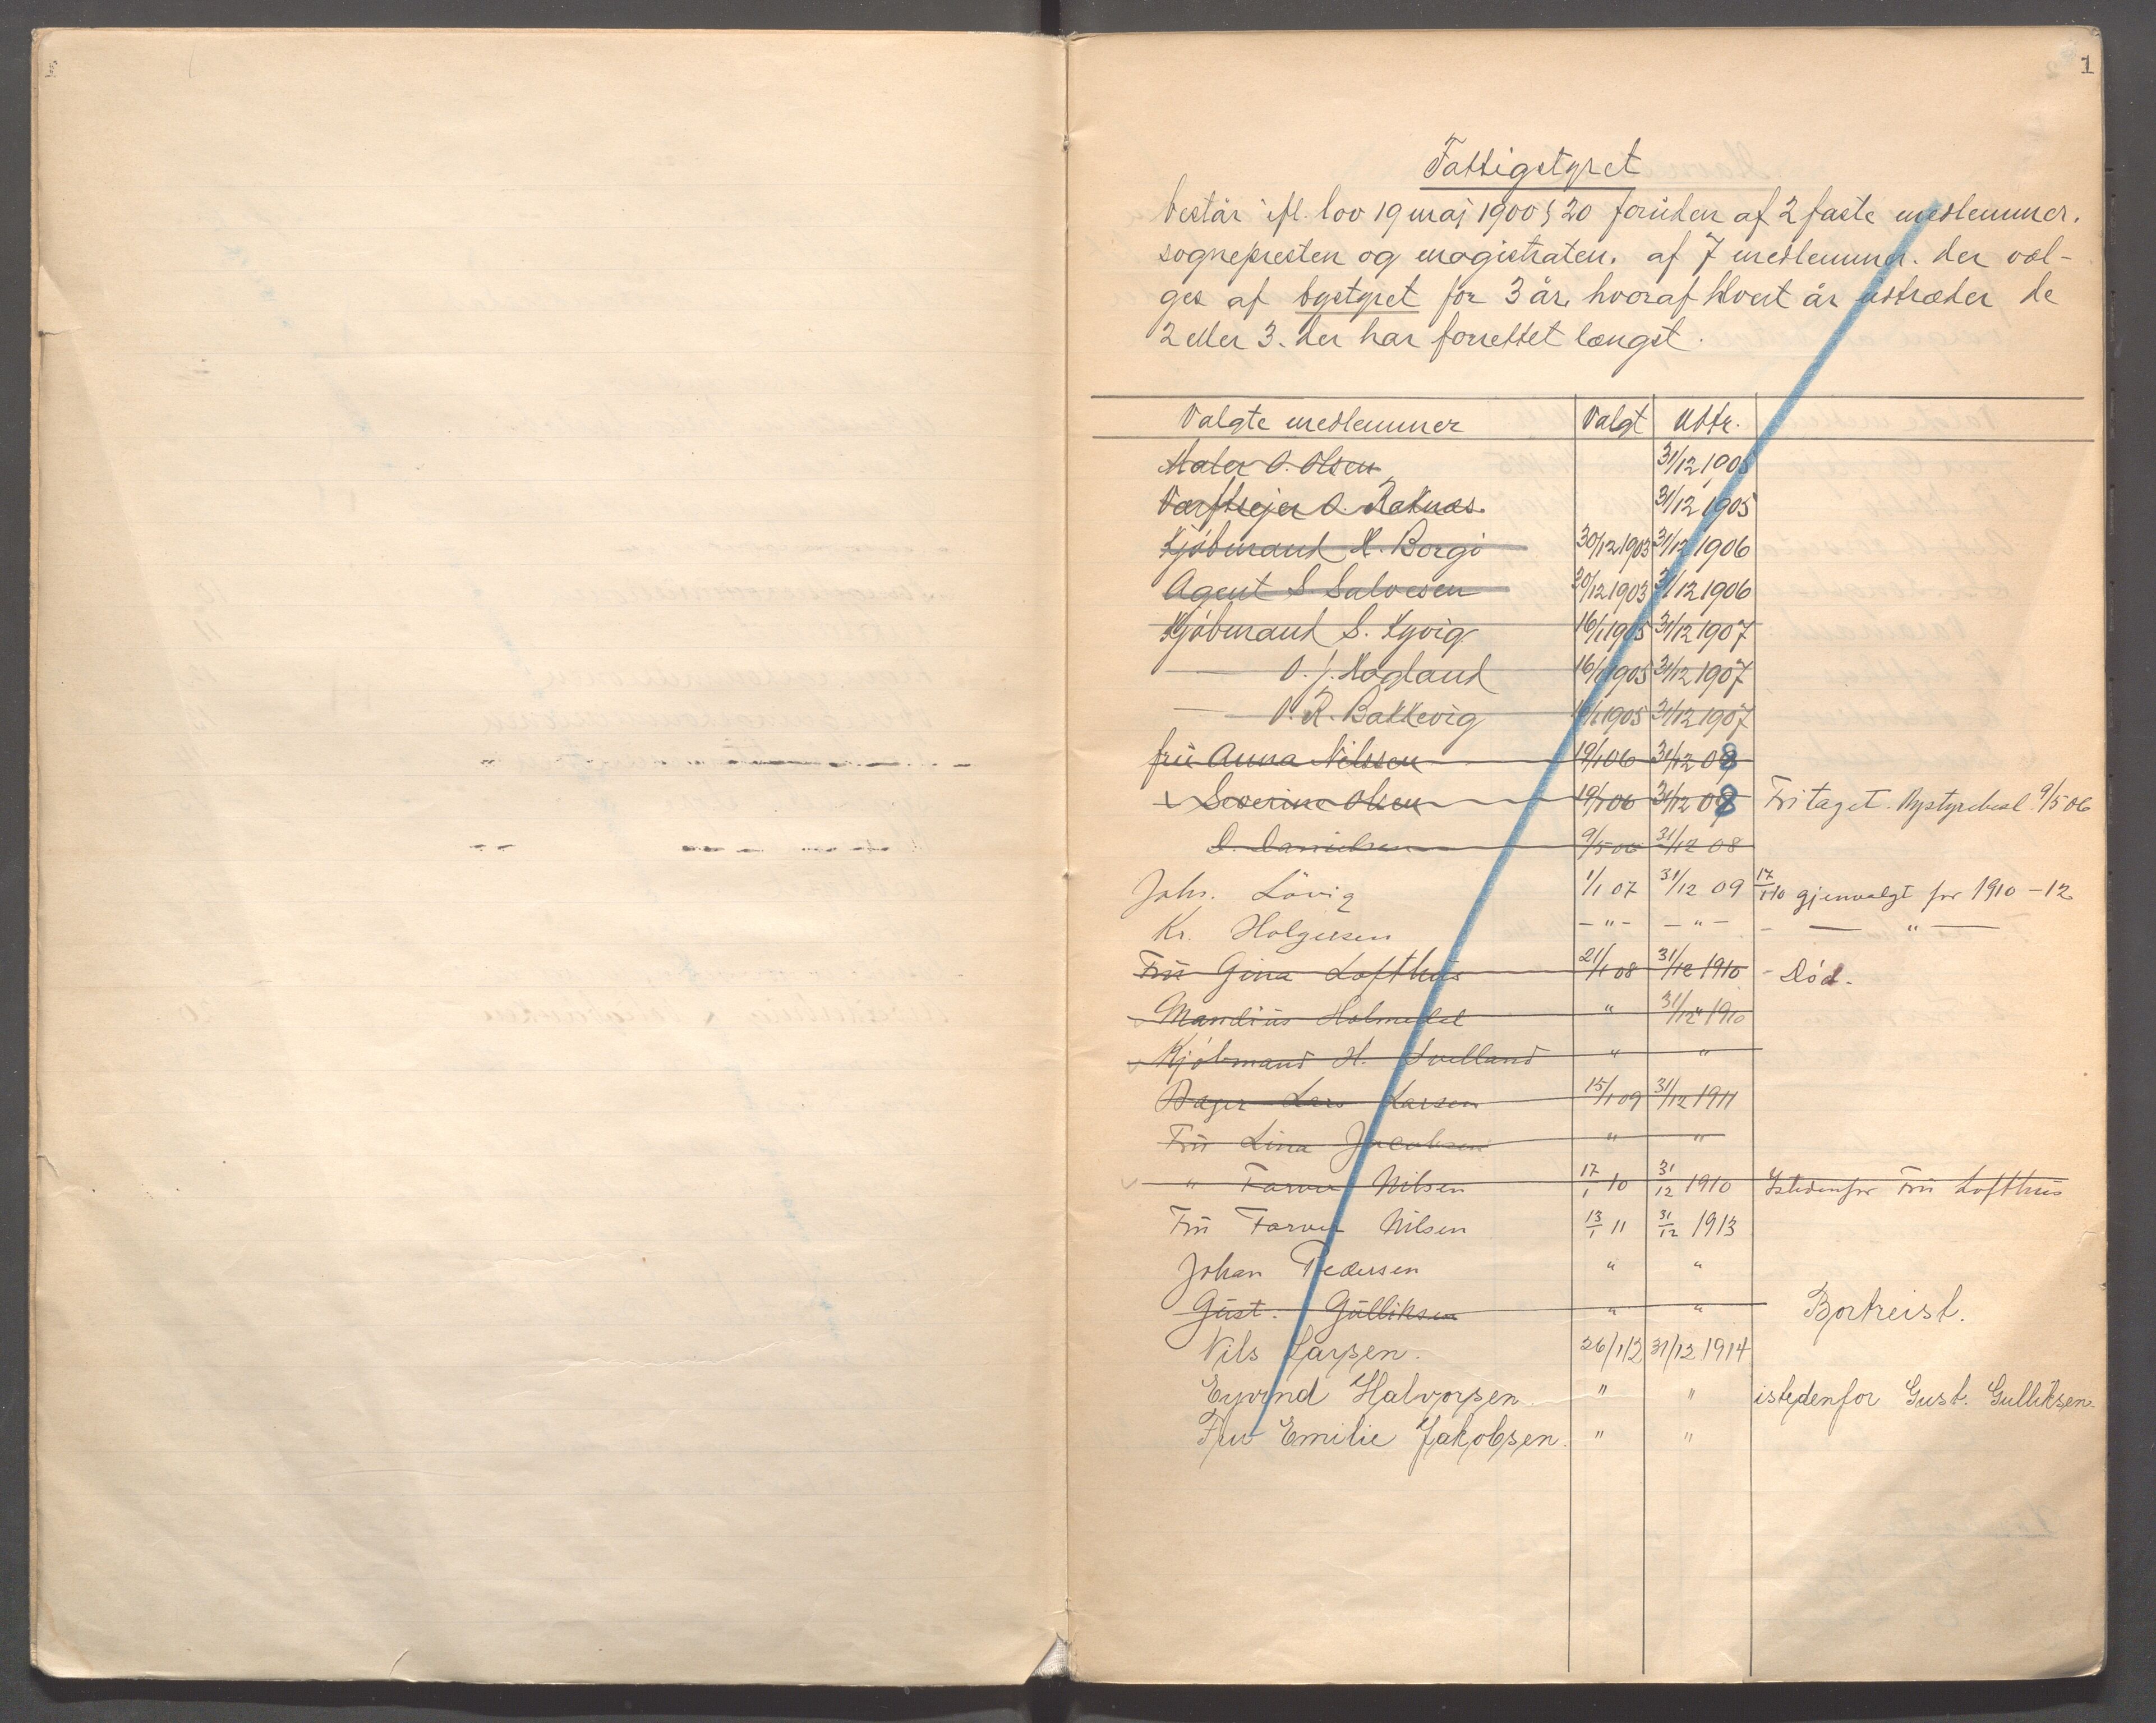 1
Fattigstyret
består ifl. lov 19 maj 1900 § 20 foruden af 2 faste medlemmer,
sognepresten og magistraten, af 7 medlemmer, der væl-
ges af bystyret for 3 år, hvoraf hvert år udtræder de
2 eller 3, der har forrettet længst.
Valgte medlemmer Valgt Udtr.
Maler O. Olsen 31/12 1905
Værftsejer O. Raknæs. 31/12 1905
Kjøbmand K. Borgø 30/12 1903 31/12 1906
Agent S. Salvesen 30/12 1903 31/12 1906
Kjøbmand S. Kyvig 16/1 1905 31/12 1907
— O. J. Hagland 16/1 1905 31/12 1907
— O. R. Bakkevig 16/1 1905 31/12 1907
frü Anna Nilssen 19/1 06 31/12 08
Severine Olsen 19/1 06 31/12 08 Fritaget. Bystyrebesl. 9/5 06
D. Danielsen 9/5 06 31/12 08
Johs. Lövig 1/1 07 31/12 09 17/1 10 gjenvalgt for 1910-12
Kr. Holgersen -"- -"- - — " —
Frü Gina Lofthüs 21/1 08 31/12 1910 - Død.
Mandiüs Holmedal " 31/12 1910
Kjøbmand H. Svelland " "
Bager Lars Larsen 15/1 09 31/12 1911
Frü Lina Jacobsen " "
" Farver Nilsen 17/1 10 31/12 1910 Istedenfor Frü Lofthüs
Frü Farver Nilsen 13/1 11 31/12 1913
Johan Pedersen " "
Güst. Gülliksen " " Bortreist.
Nils Larsen. 26/1 12 31/12 1914
Eyvind Halvorsen " " istedenfor Gust. Gulliksen.
Fru Emilie Jakobsen. " "